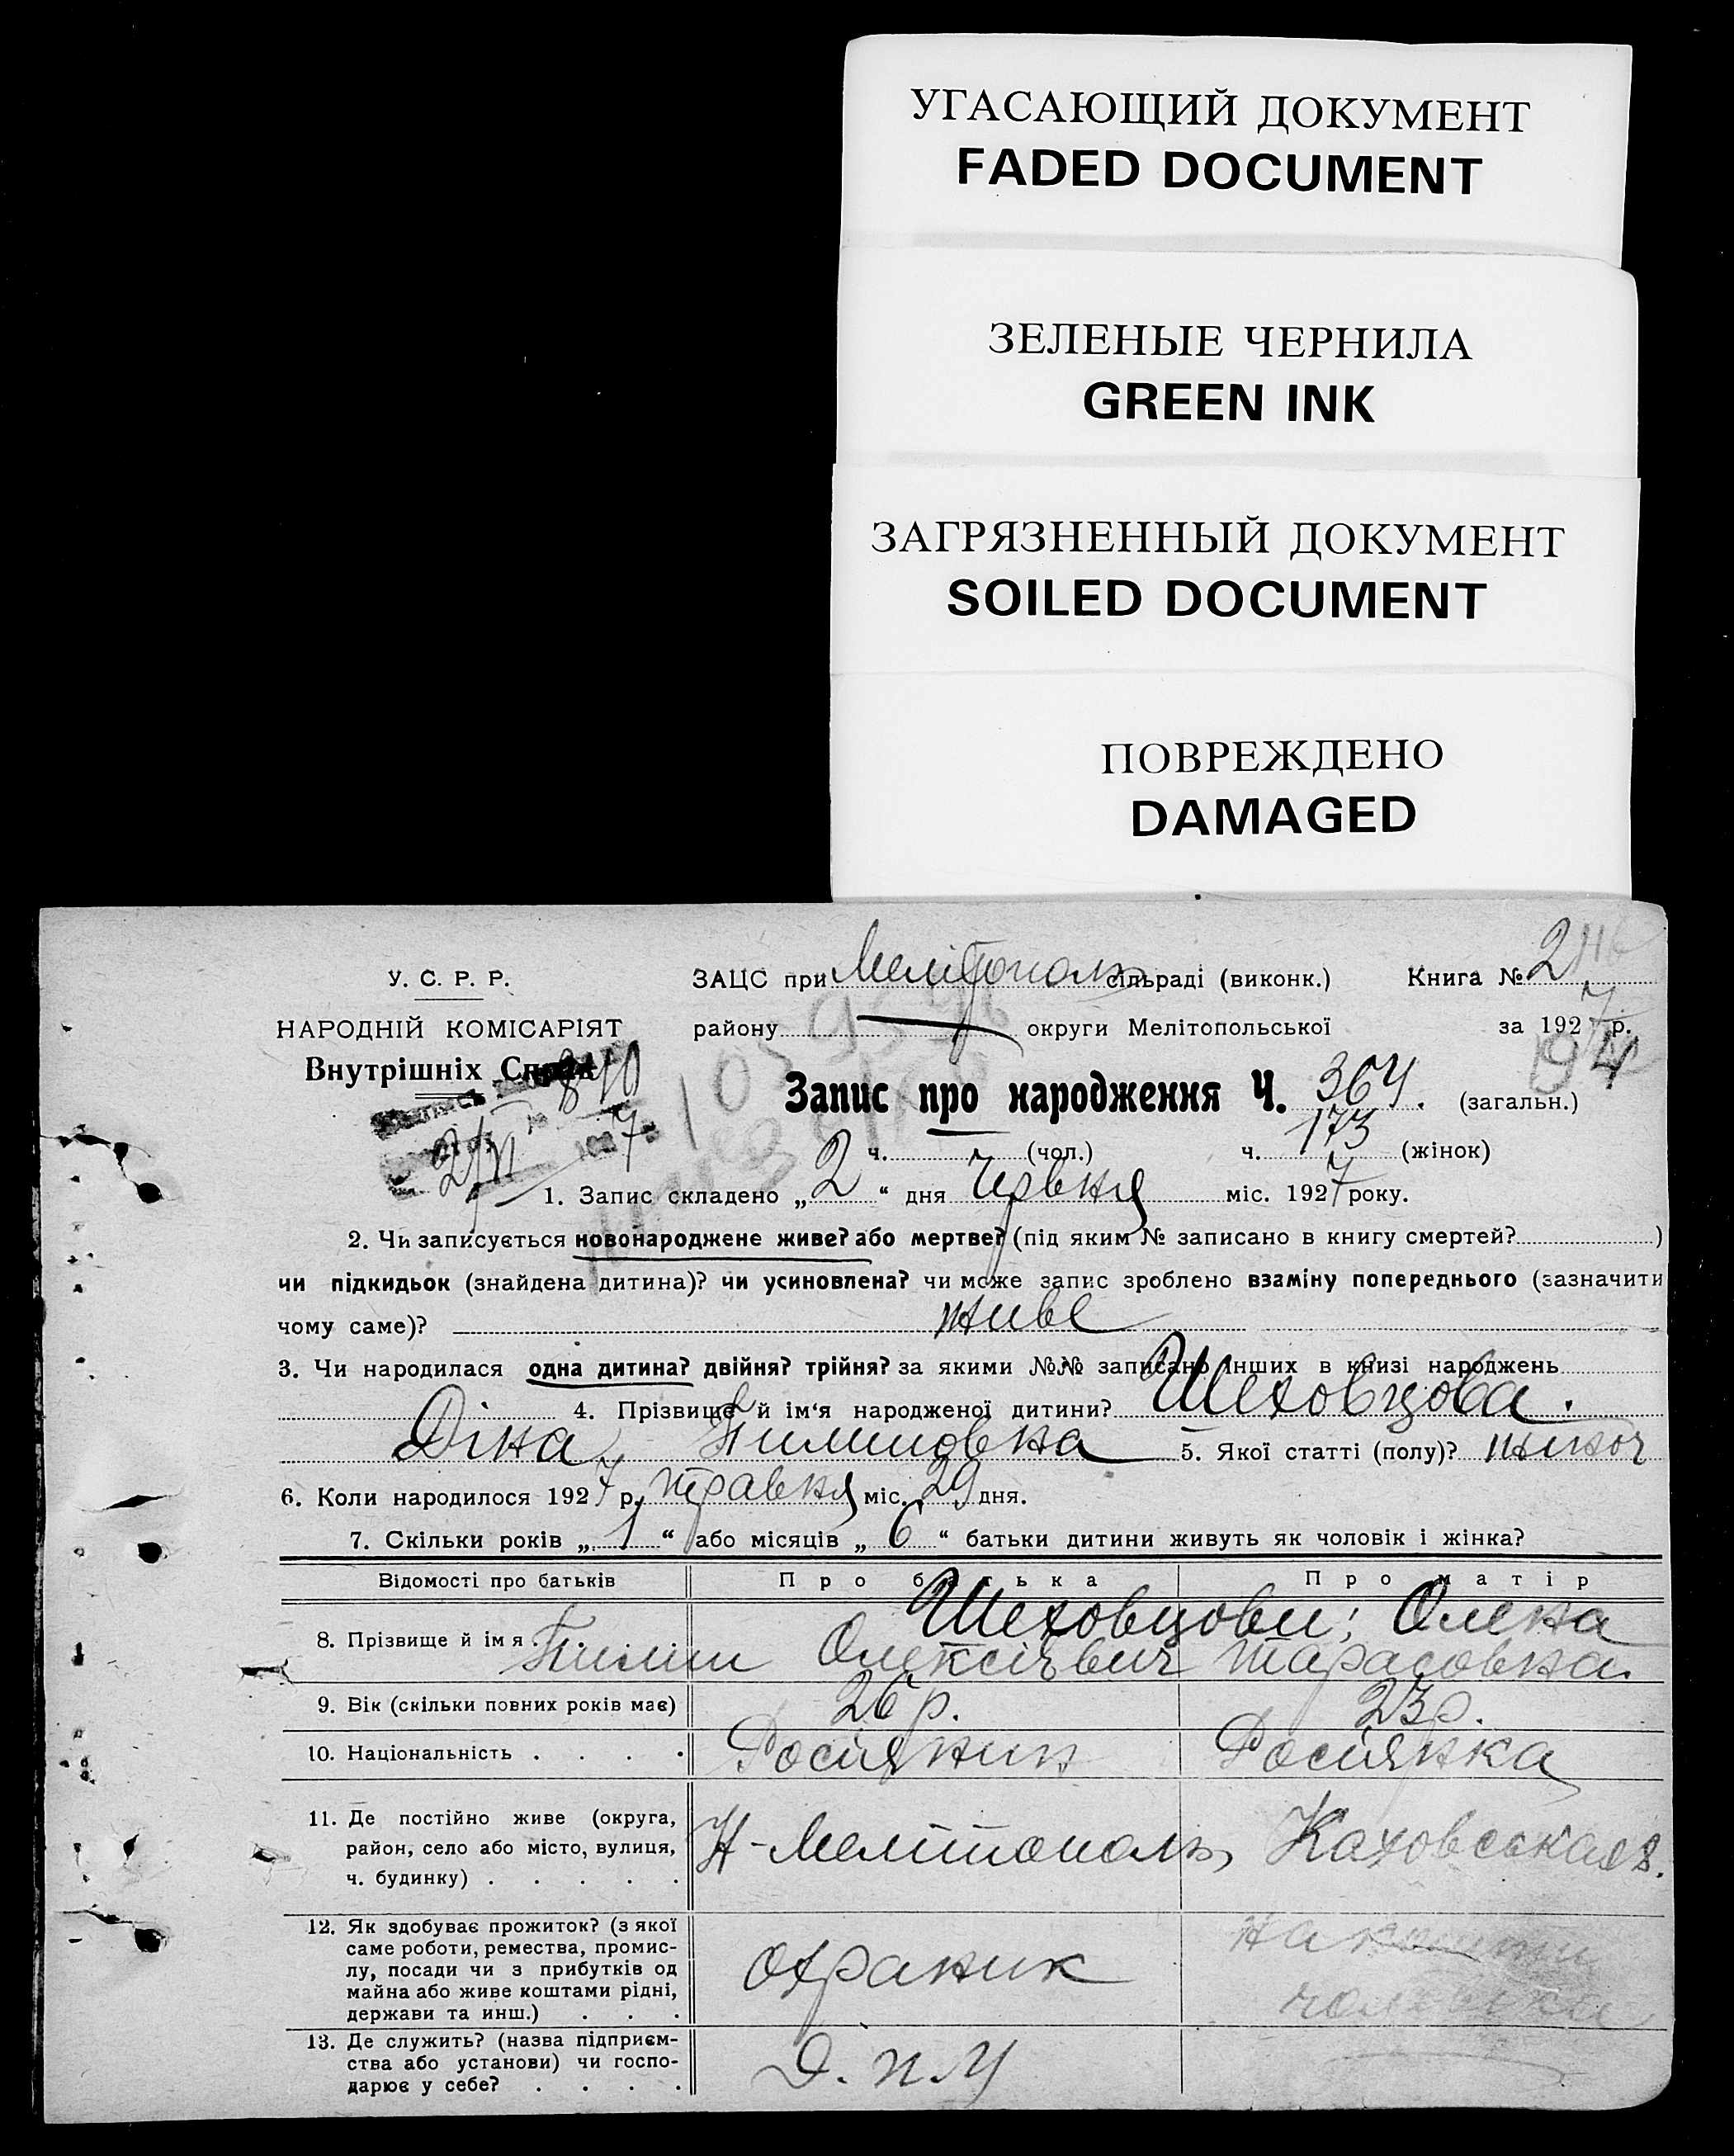 УГАСАЮЩИЙ ДОКУМЕНТ
FADED DOCUMENT
ЗЕЛЕНЫЕ ЧЕРНИЛА
GREEN INK
ЗАГРЯЗНЕННЫЙ ДОКУМЕНТ
SOILED DOCUMENT
ПОВРЕЖДЕНО
DAMAGED
У. С. Р. Р. ЗАЦС при Мелітополь сільраді (виконк.) Книга № 2
НАРОДНІЙ КОМІСАРІЯТ району округи Мелітопольської за 1927 р.
Внутрішніх Справ
Запис про народження Ч. 364. (загальн.)
ч. (чол.) ч. 173 (жінок)
1. Запис складено „ 2 “ дня Червня міс. 1927 року.
2. Чи записується новонароджене живе? або мертве? (під яким № записано в книгу смертей? )
чи підкидьок (знайдена дитина)? чи усиновлена? чи може запис зроблено взаміну попереднього (зазначити
чому саме)? живе
3. Чи народилася одна дитина? двійня? трійня? за якими №№ записано інших в книзі народжень
4. Прізвище й ім‘я народженої дитини? Шеховцова.
Діна Пилиповна 5. Якої статті (полу)? жіноч
6. Коли народилося 1927 р. травня міс. 29 дня.
7. Скільки років „ 1 “ або місяців „ 6 “ батьки дитини живуть як чоловік і жінка?
Відомості про батьків Про батька Про матір
Шеховцови; Олена
8. Прізвище й імя . Пилип Олексієвич Тарасовна.
9. Вік (скільки повних років має) 26 р. 23 р.
10. Національність . . . . Росіянин Росіянка
11. Де постійно живе (округа,
район, село або місто, вулиця, Н-Мелітополь, Каховська 8.
ч. будинку) . . . . .
12. Як здобуває прожиток? (з якої
саме роботи, ремества, промис-
лу, посади чи з прибутків од охраник
майна або живе коштами рідні,
держави та инш.) . . .
13. Де служить? (назва підприєм-
ства або установи) чи госпо- Д. П. У
дарює у себе? . . . .